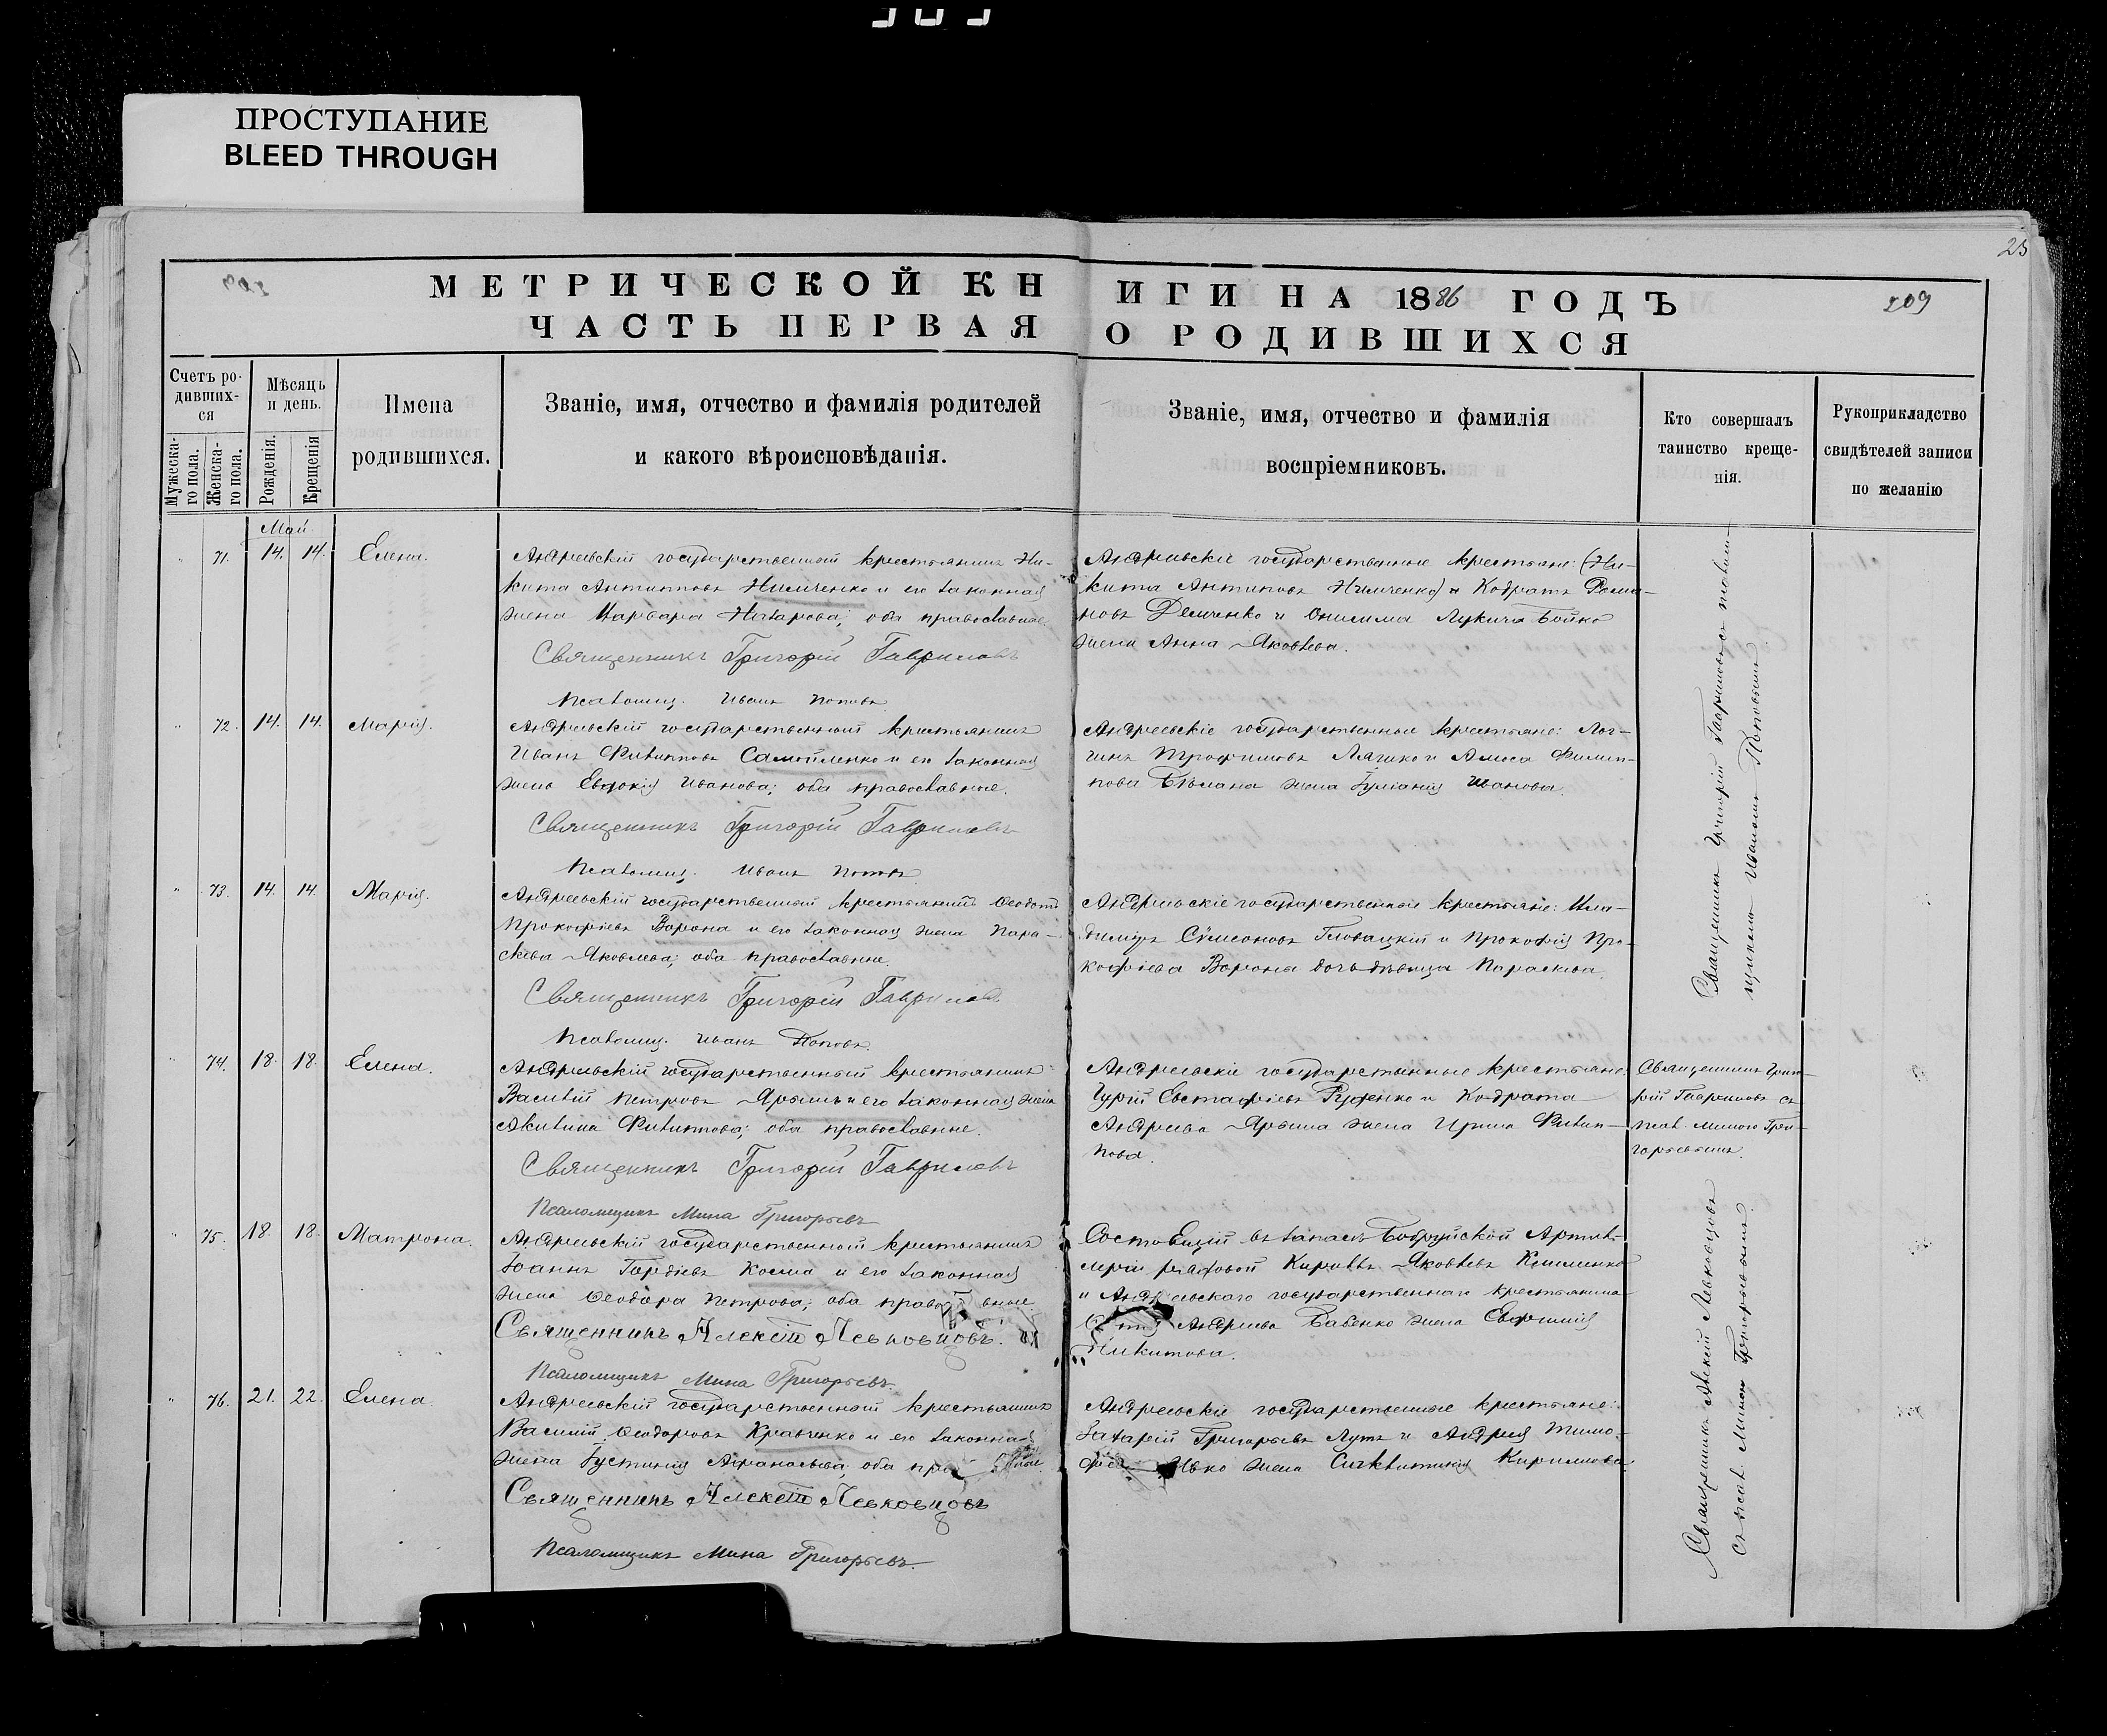 ПРОСТУПАНИЕ
BLEED THROUGH
25
МЕТРИЧЕСКОЙ КНИГИ НА 1886 ГОДЪ
209
ЧАСТЬ ПЕРВАЯ О РОДИВШИХСЯ
Счетъ ро-
дивших-
ся
Мужеска-
го пола.
Женска-
го пола.
Мѣсяцъ
и день.
Рожденія.
Крещенія
Имена
родившихся.
Званіе, имя, отчество и фамилія родителей
и какого вѣроисповѣданія.
Званіе, имя, отчество и фамилія
воспріемниковъ.
Кто совершалъ
таинство креще-
нія.
Рукоприкладство
свидѣтелей записи
по желанію
Май
71. 14. 14. Елена.
Андреевскій государственный крестьянинъ Ни-
кита Антиповъ Нимченко и его законная
жена Варвара Назарова; оба православные.
Священникъ Григорій Гавриловъ
Псаломщ. Иванъ Поповъ
Андреевскіе государственные крестьяне: (Ни-
кита Антиповъ Нимченко) и Кодратъ Рома-
новъ Демченко и Онисима Лукича Бойко
жена Анна Яковлева.
72. 14. 14. Марія.
Андреевскій государственный крестьянинъ
Иванъ Филипповъ Самойленко и его законная
жена Евдокія Иванова; оба православные.
Священникъ Григорій Гавриловъ
Псаломщ. Иванъ Поповъ
Андреевскіе государственные крестьяне: Лог-
гинъ Трофимовъ Ляшко и Амоса Филип-
пова жена Іуліанія Иванова.
73. 14. 14. Марія.
Андреевскій государственный крестьянинъ Ѳеодотъ
Прокофіевъ Ворона и его законная жена Пара-
скева Яковлева; оба православные.
Священникъ Григорій Гавриловъ
Псаломщ. Иванъ Поповъ.
Андреевскіе государственные крестьяне: Вла-
диміръ Сѵмеоновъ Гловацкій и Прокофія Про-
кофіева Ворона дочь дѣвица Параскева.
Священникъ Григорій Гавриловъ съ псалом-
щикомъ Иваномъ Поповымъ
74. 18. 18. Елена.
Андреевскій государственный крестьянинъ
Василій Петровъ Ярышъ и его законная жена
Акилина Филиппова; оба православные.
Священникъ Григорій Гавриловъ
Псаломщикъ Мина Григорьевъ
Андреевскіе государственные крестьяне:
Гурій Евстафіевъ Руденко и Кодрата
Андреева Ярыша жена Ирина Филип-
пова.
Священникъ Григо-
рій Гавриловъ съ
псал. Миною Гри-
горьевымъ.
75. 18. 18. Матрона.
Андреевскій государственный крестьянинъ
Іоаннъ Гордіевъ Косма и его законная
жена Ѳеодора Петрова; оба православные.
Священникъ Алексій Левковцовъ.
Псаломщикъ Мина Григорьевъ.
Состоящій въ запасѣ Бобруйской Артил-
леріи рядовой Кириллъ Яковлевъ Клименко
и Андреевскаго государственнаго крестьянина
Андреева Бабенко жена Евфимія
Никитова.
76. 21. 22. Елена.
Андреевскій государственный крестьянинъ
Василій Ѳеодоровъ Кравченко и его законная
жена Іустинія Аѳанасьева; оба
Священникъ Алексій Левковцовъ
Псаломщикъ Мина Григорьевъ.
Андреевскіе государственные крестьяне:
Захарій Григорьевъ Лутъ и Андрея Тимо-
жена Сигклитикія Кириллова
Священникъ Алексій Левковцовъ
съ псал. Миною Григорьевымъ.